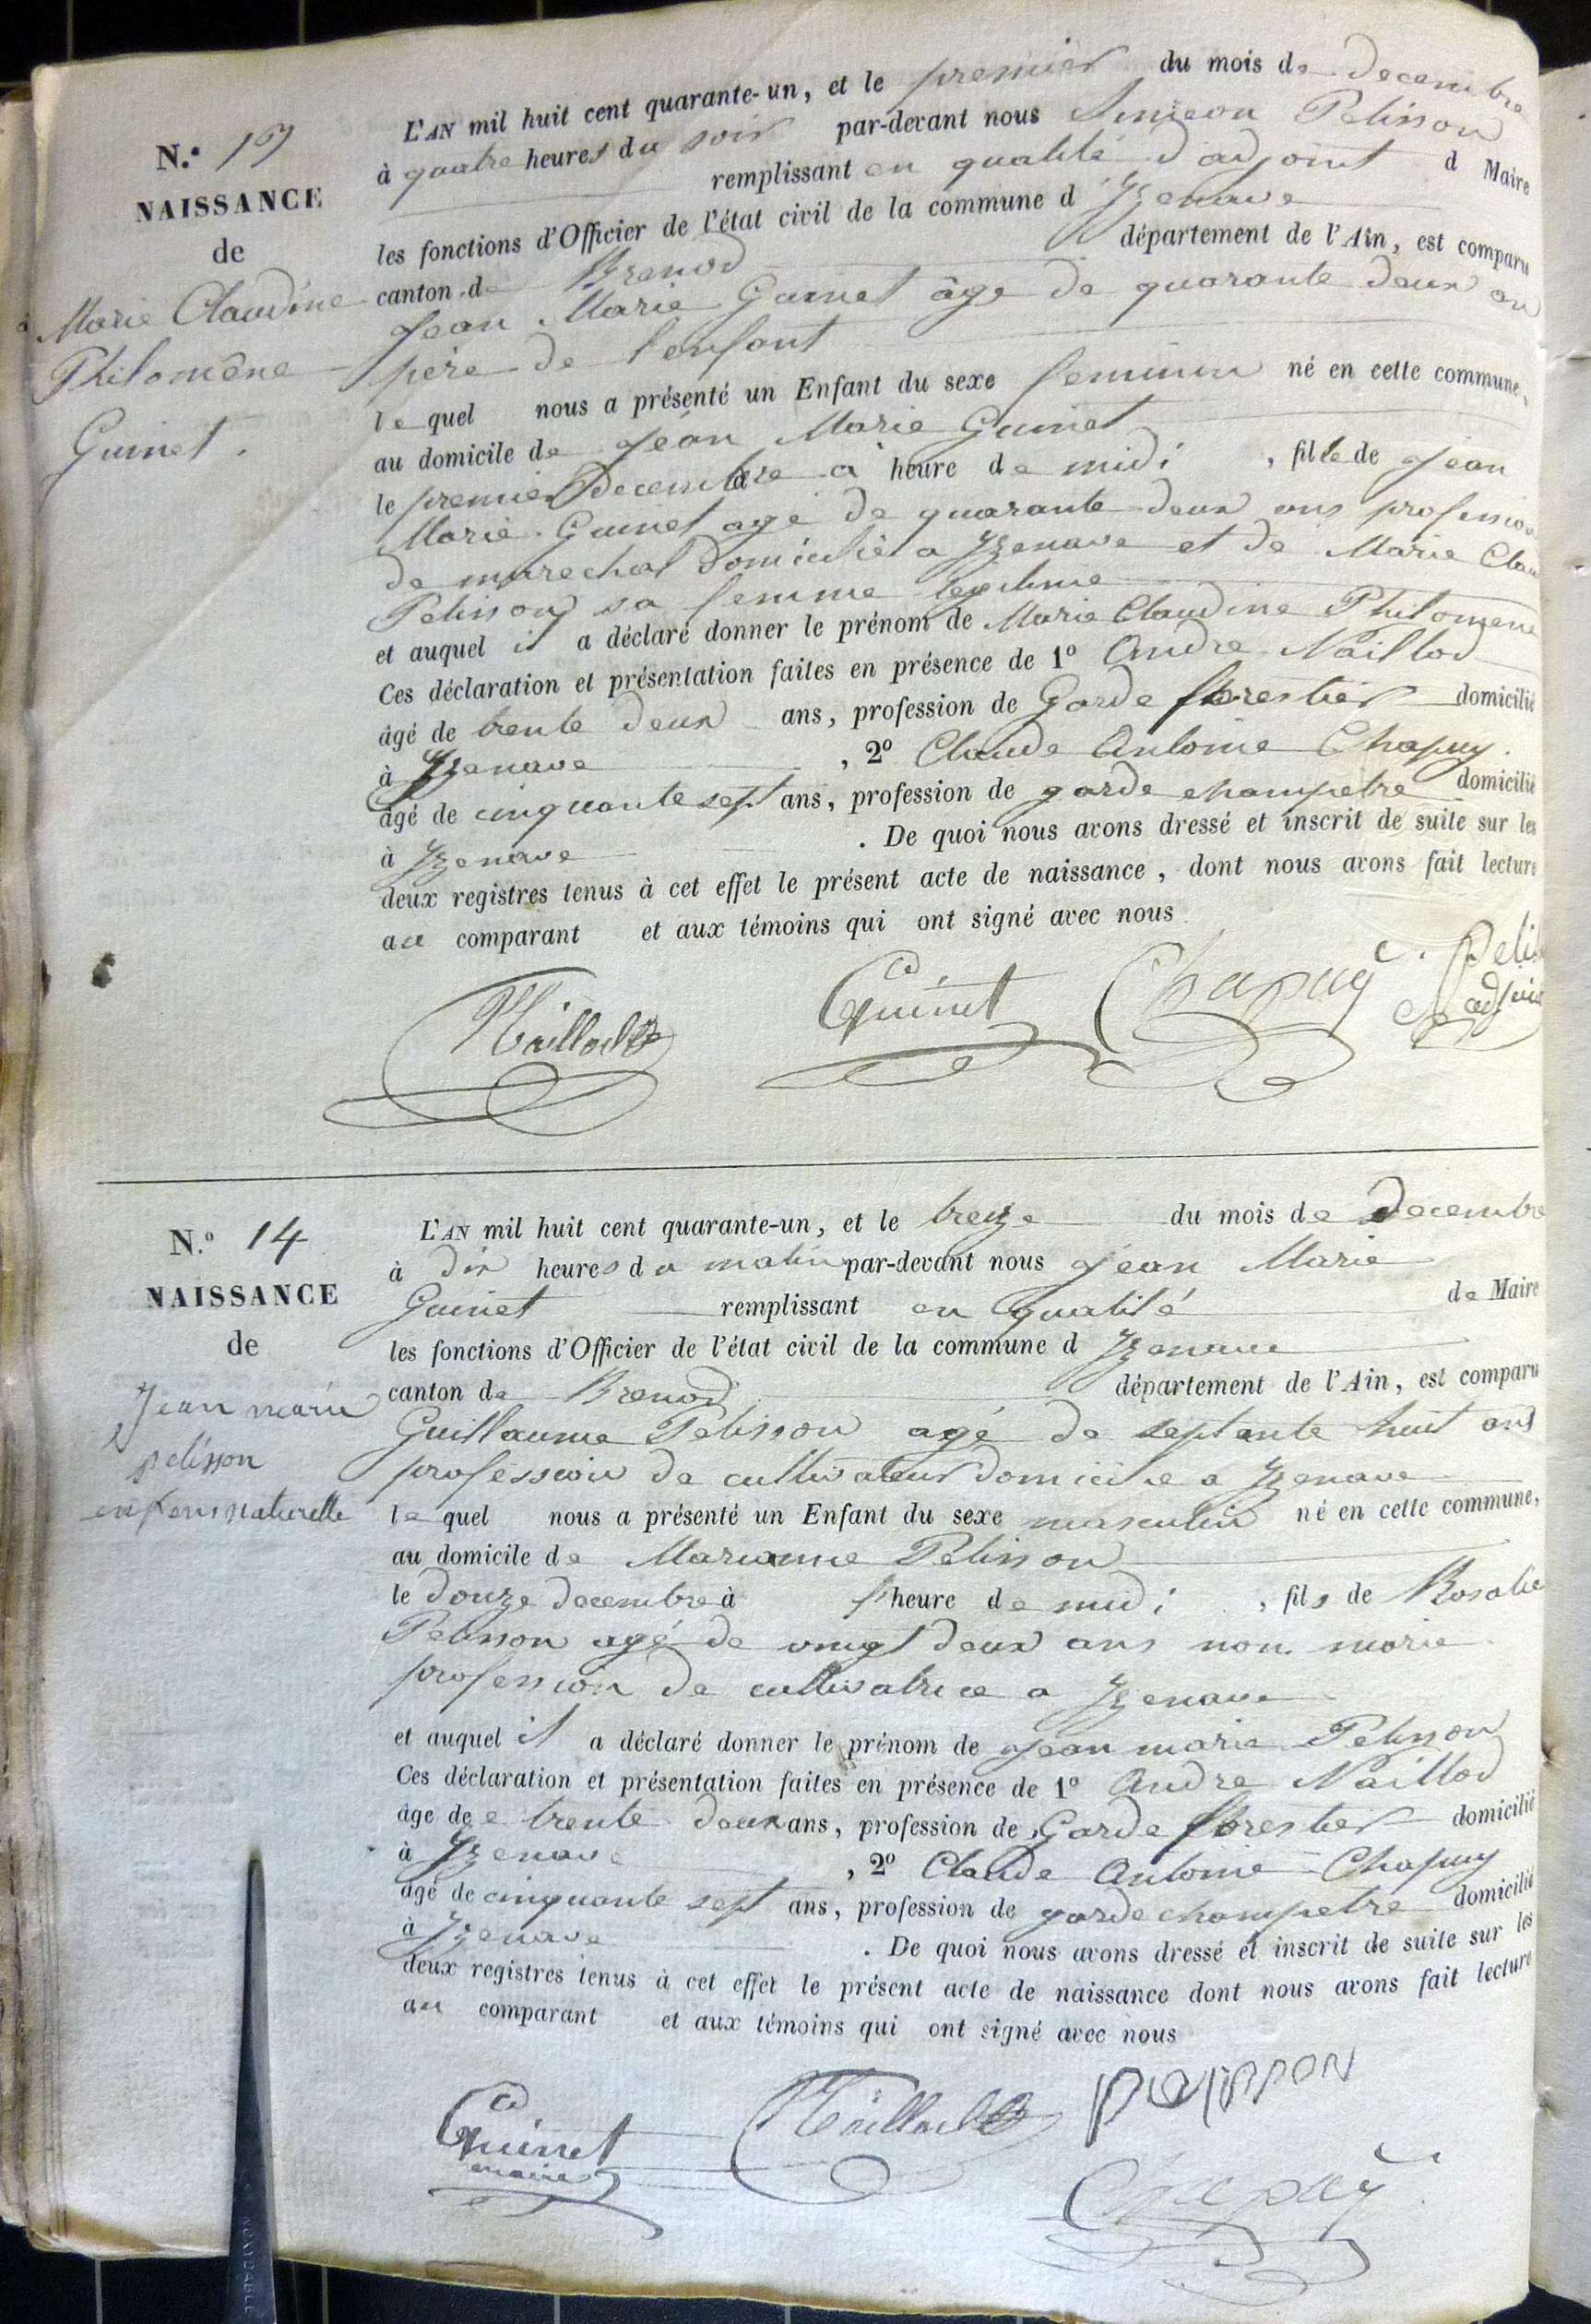 N.º 13
NAISSANCE
de
Marie Claudine
Philomène
Guinet.
L'AN mil huit cent quarante-un, et le premier du mois de decembre
à quatre heures du soir par-devant nous Simeon Pelisson
remplissant en qualité d'adjoint d Maire
les fonctions d'Officier de l'état civil de la commune d'Yzenave
canton de Brenod département de l'Ain, est comparu
Jean Marie Guinet âge de quarante deux an
père de l'enfant
le quel nous a présenté un Enfant du sexe feminin né en cette commune,
au domicile de Jean Marie Guinet
le premier Decembre a heure de midi, fille de Jean
Marie Guinet age de quarante deux ans profession
de marechal domicilié a Yzenave et de Marie Clau
Pelisson sa femme legitime
et auquel il a déclaré donner le prénom de Marie Claudine Philomene
Ces déclaration et présentation faites en présence de 1º Andre Naillod
âgé de trente deux ans, profession de Garde forestier domicilié
à Yzenave, 2º Claude Antoine Chapuy.
âgé de cinquante sept ans, profession de garde champetre domicilié
à Yzenave. De quoi nous avons dressé et inscrit de suite sur les
deux registres tenus à cet effet le présent acte de naissance, dont nous avons fait lecture
au comparant et aux témoins qui ont signé avec nous
Naillod Guinet Chapuy Pelis
adjoin
N.º 14
NAISSANCE
de
Jean marie
pelisson
enfens naturelle
L'AN mil huit cent quarante-un, et le treize du mois de Decembre
à dix heures du matin par-devant nous Jean Marie
Guinet remplissant en qualité de Maire
les fonctions d'Officier de l'état civil de la commune d Yzenave
canton de Brenod département de l'Ain, est comparu
Guillaume Pelisson agé de septante huit ans
profession de cultivateur domicilie a Yzenave
le quel nous a présenté un Enfant du sexe masculin né en cette commune,
au domicile de Marianne Pelisson
le douze decembre à l'heure de midi, fils de Rosalie
Pelisson agé de vingt deux ans non marie
profession de cultivatrice a Yzenave
et auquel il a déclaré donner le prénom de Jean marie Pelisson
Ces déclaration et présentation faites en présence de 1º Andre Naillod
âge de e trente deux ans, profession de Garde forestier domicilié
à Yzenave, 2º Claude Antoine Chapuy
âgé de cinquante sept ans, profession de garde champetre domicilié
à Yzenave. De quoi nous avons dressé et inscrit de suite sur les
deux registres tenus à cet effet le présent acte de naissance dont nous avons fait lecture
au comparant et aux témoins qui ont signé avec nous
Guinet Naillod
maire
Chapuy